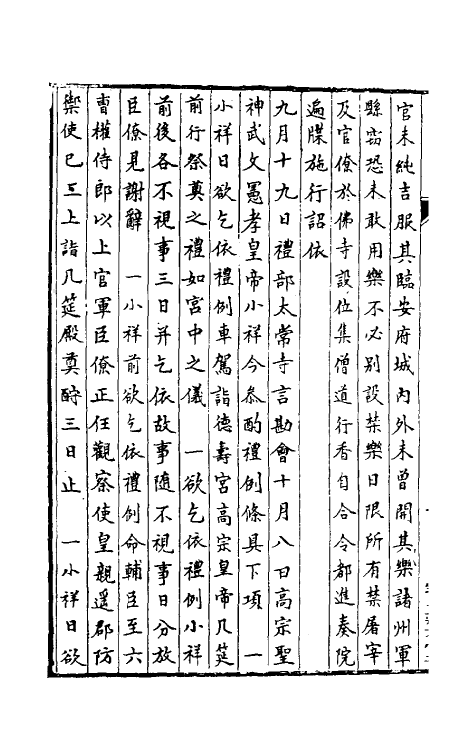 官未純吉服其臨安府城內外未曽開其樂諸州軍
縣竊恐未敢用樂不必别設禁樂日限所有禁屠宰
及官僚於佛寺設位集僧道行香自合令都進奏院
遍牒施行詔依
九月十九日禮部太常寺言勘會十月八日高宗聖
神武文憲孝皇帝小祥今叅酌禮例條具下項　一
小祥日欲乞依禮例車駕詣德壽宮高宗皇帝几筵
前行祭奠之禮如宮中之儀　一欲乞依禮例小祥
前後各不視事三日并乞依故事隨不視事日分放
臣僚見謝辭　一小祥前欲乞依禮例命輔臣至六
曹權侍郎以上官軍臣僚正任觀察使皇親遥郡防
禦使已上詣几筵殿奠酹三日止　一小祥日欲